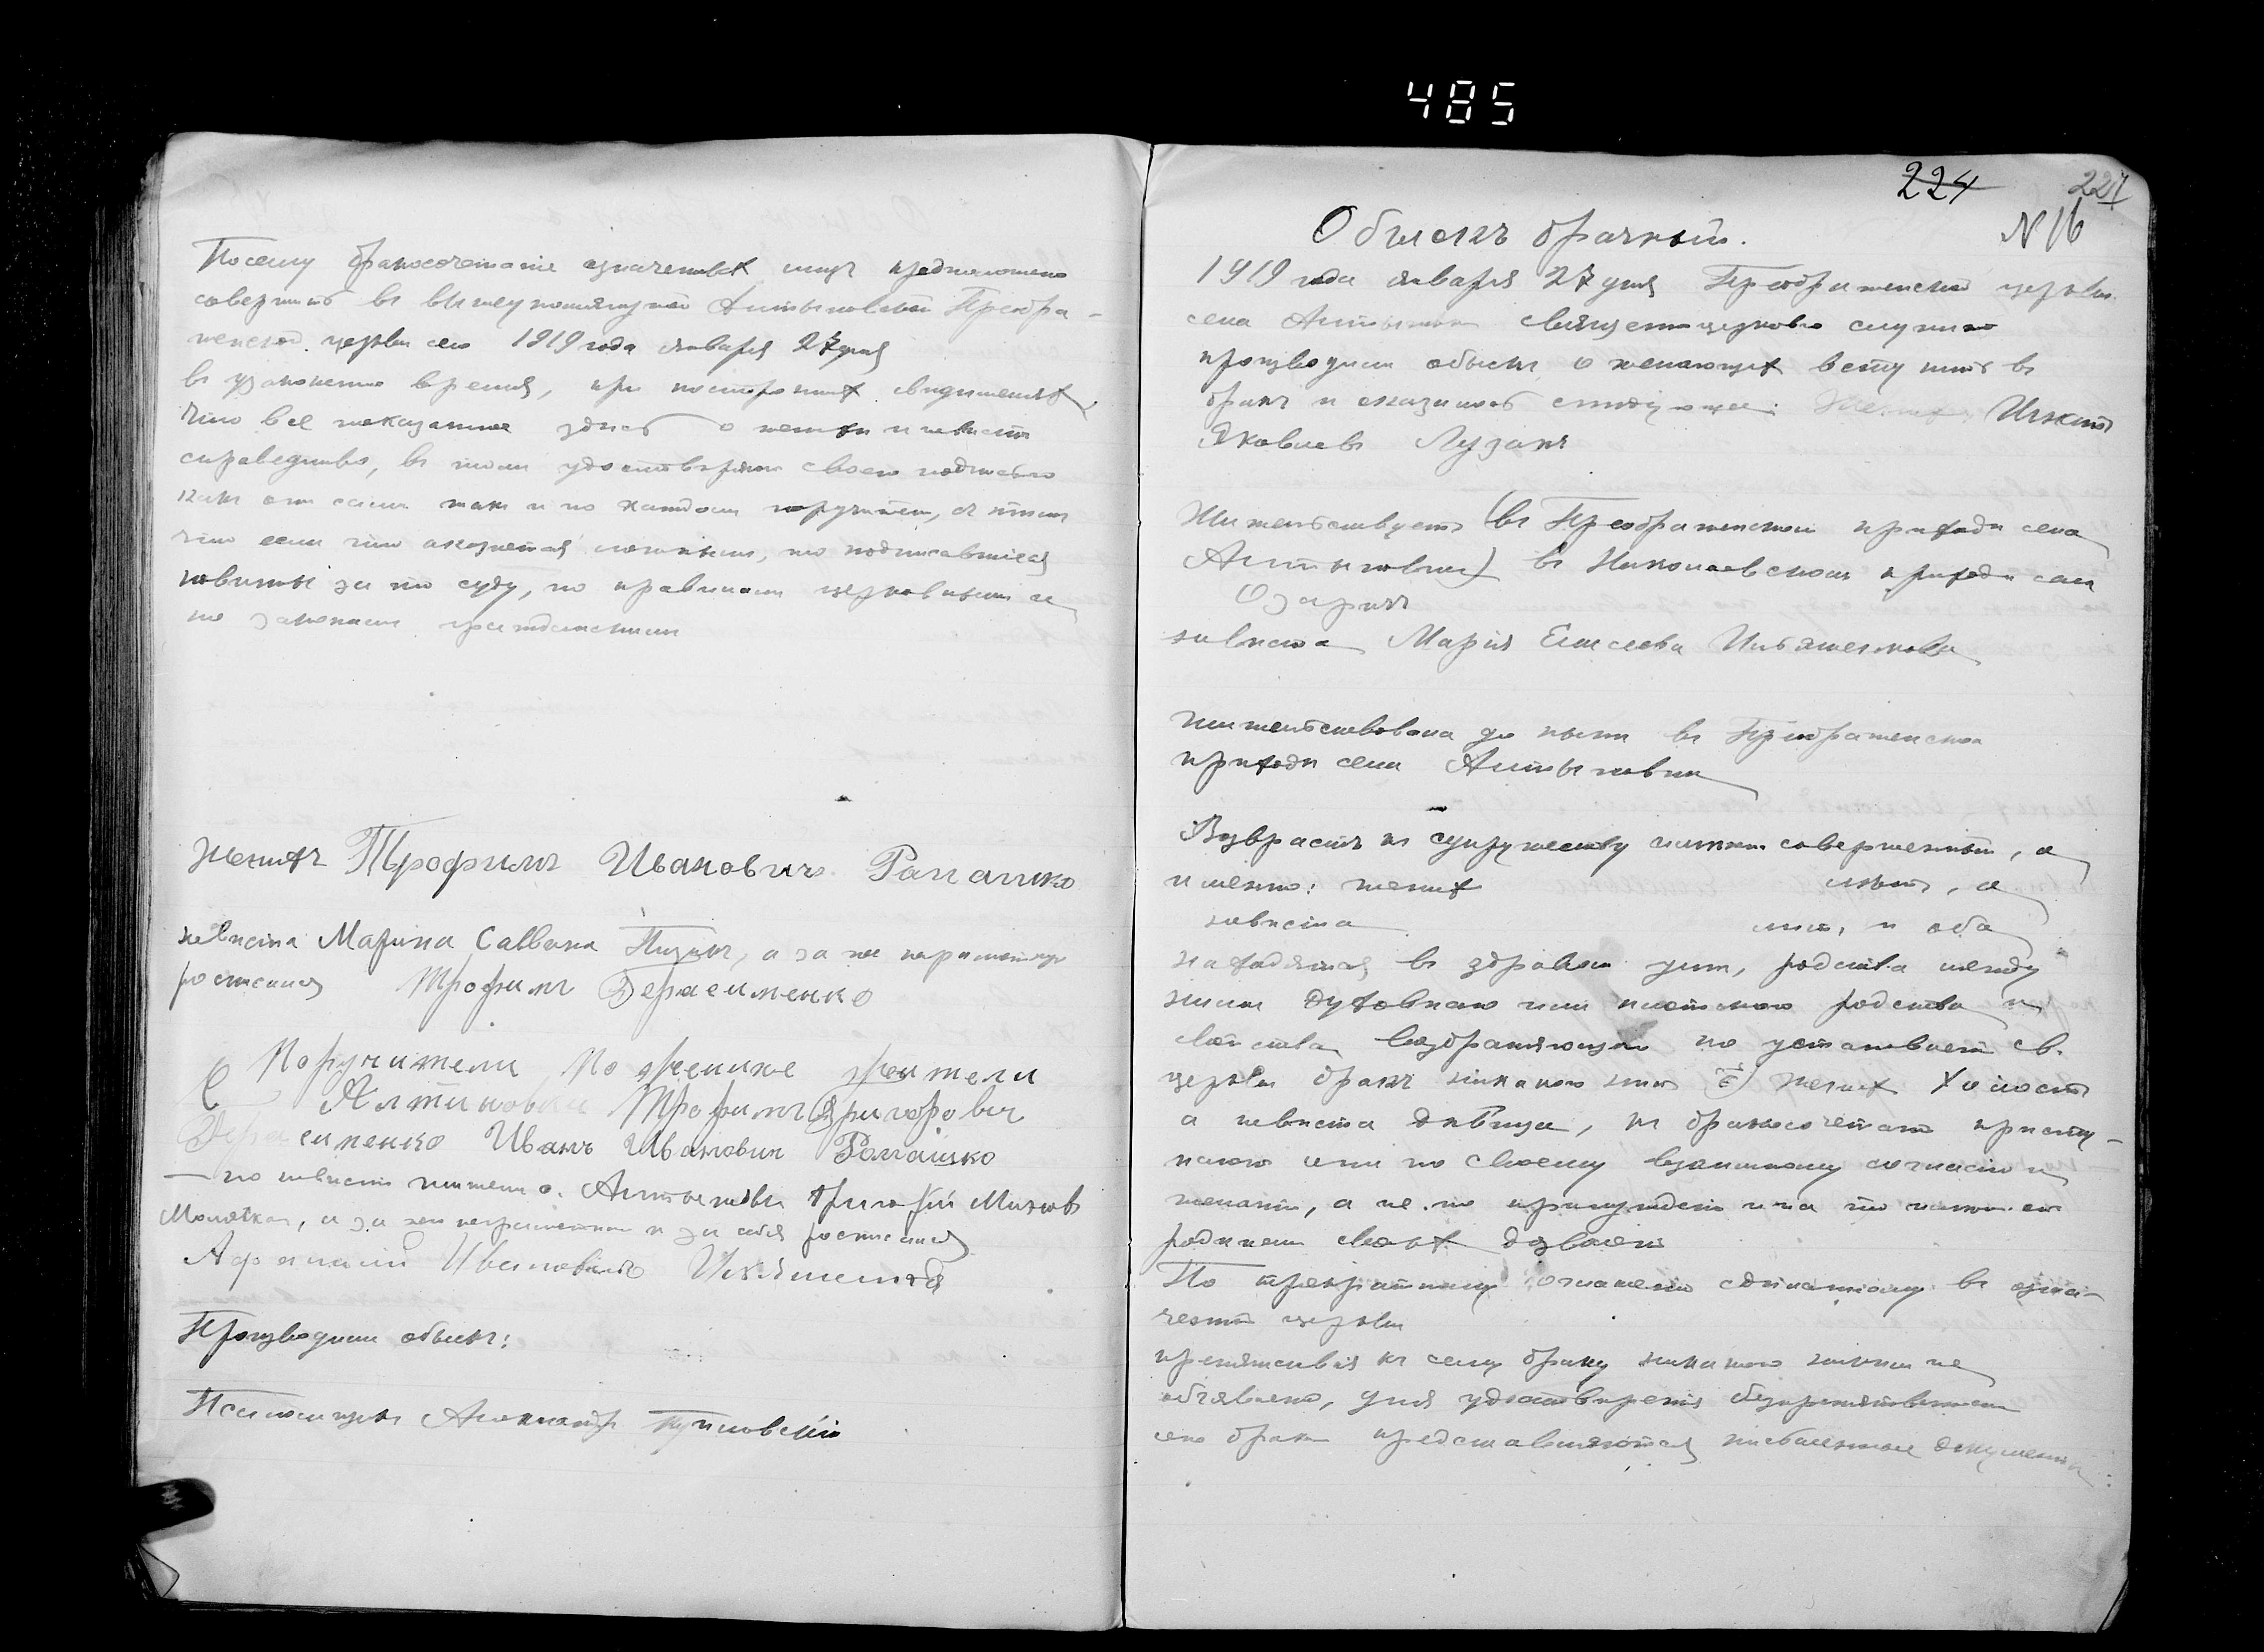 485
Посему бракосочетание означенных лицъ предположено
совершить въ вышеупомянутой Алтыновской Преобра-
женской церкви сего 1919 года января 27 дня
въ узаконенное время, при постороннихъ свидетеляхъ,
Что все показанное здесь о женихе и невесте
справедливо, въ томъ удостоверяютъ своею подписью
какъ они сами такъ и по каждомъ поручители, съ темъ
что если что окажется ложнымъ, то подписавшиеся
повинны за то суду, по правиламъ церковнымъ и
по законамъ гражданскимъ
женихъ Трофимъ Ивановичъ Ромашко
невеста Марина Саввина, а за нее неграмотную
росписался Трофимъ Герасименко
Поручители По женихе жители
С Алтиновки Трофимъ Григоровичъ
Герасименко Иванъ Ивановичъ Ромашко
— по невесте жители с. Алтыновки Григорій
а за него неграмотнаго и за себя росписался
Афанасий Ивановичъ
Производили обыскъ:
Псаломщикъ Александръ
224 224
Обыскъ брачный. N 16
1919 года января 27 дня Преображенской церкви
села Алтыновки священноцерковно служители
производили обыскъ о желающихъ вступить въ
бракъ и оказалось следующее: Женихъ Игнатъ
Яковлевъ Лузанъ
Жительствуетъ (въ Преображенскомъ приходе села
Алтыновки) въ Николаевскомъ приходе села
невеста Мария Елисеева
жительствовала до ныне въ Преображенскомъ
приходе села Алтыновки
Возврастъ къ супружеству имеютъ совершенный, а
именно: женихъ летъ, а
невеста летъ, и оба
находятся въ здравомъ уме, родства между
ними духовнаго или плотскаго родства и
свойства возбраняющаго по установлению св.
церкви бракъ никакого нетъ женихъ холостъ
а невеста девица, къ бракосочетанию присту-
паютъ они по своему взаимному согласию и
желанию, а не по принуждению и на то имеютъ
родителей своихъ дозволение
По троекратному оглашению сделанному въ озна-
ченной церкви
препятствия къ сему браку никакого никемъ не
объявлено, для удостоверения безпрепятственности
сего брака представляются письменные документы: